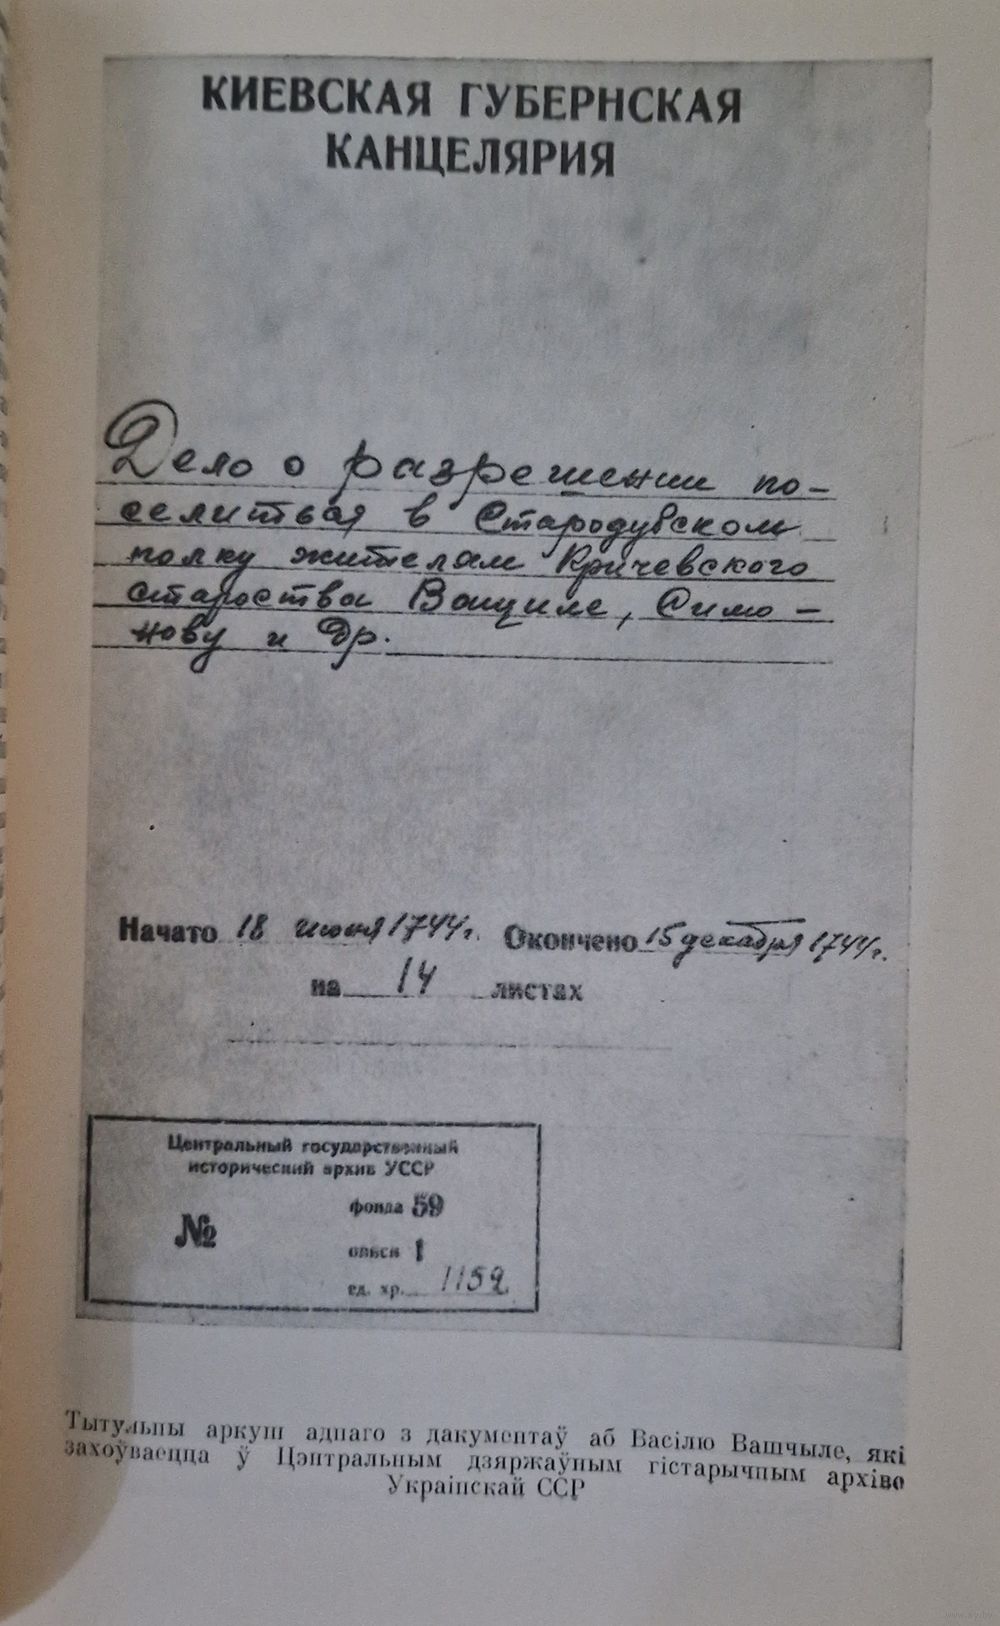 КИЕВСКАЯ ГУБЕРНСКАЯ
КАНЦЕЛЯРИЯ
Дело о разрешении по-
селиться в Стародубском
полку жителям Кричевского
староства Ващиле, Симо-
нову и др.
Начато 18 июня 1744г. Окончено 15 декабря 1744г.
на 14 листах
Центральный государственный
исторический архив УССР
№ фонда 59
описи 1
ед. хр. 1159
Тытульны аркуш аднаго з дакументаў аб Васілю Вашчыле, які
захоўваецца ў Цэнтральным дзяржаўным гістарычным архіве
Украінскай ССР